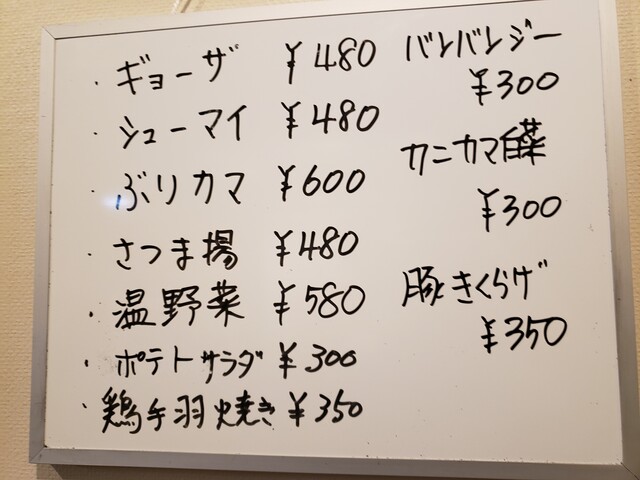 ・ギョーザ ¥480
・シューマイ ¥480
・ぶりカマ ¥600
・さつま揚 ¥480
・温野菜 ¥580
・ポテトサラダ ¥300
・鶏手羽焼き ¥350
バンバンジー
¥300
カニカマ白菜
¥300
豚きくらげ
¥350